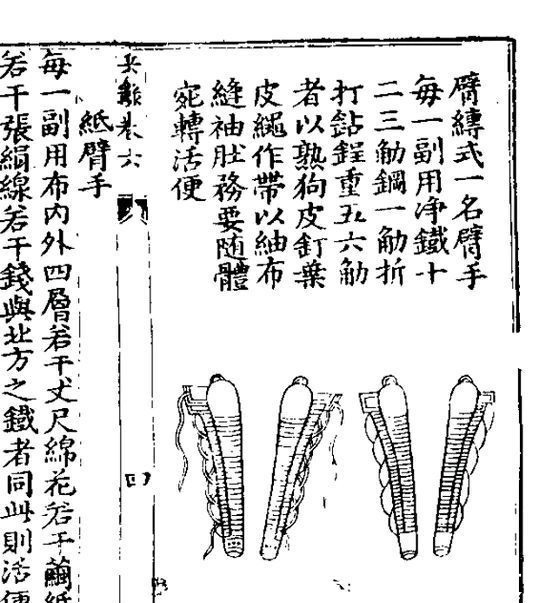 臂縛式一名臂手
每一副用净鐵十
二三觔鋼一觔折
打鉆鋥重五六觔
者以熟狗皮釘葉
皮繩作帶以紬布
縫袖肚務要随體
宛轉活便
卷六
四
紙臂手
每一副用布内外四層若干丈尺綿花若干繭紙
若干張絹線若干錢與北方之鐵者同此則活便